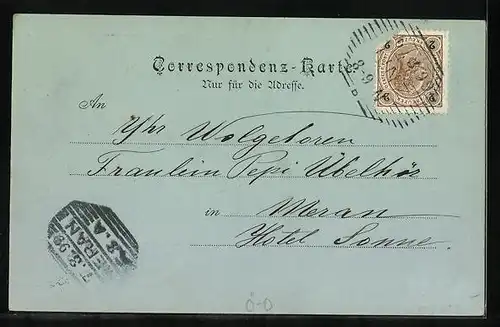 Correspondenz-Karte.
Nur für die Adresse.
An
Ihr Wolgeboren
Fräulein Pepi Übelhör
in Meran
Hotel Sonne.
2 2
2 2
MERAN
8.99
8.A
Ö-O